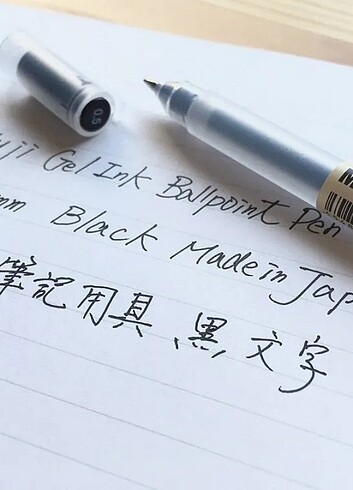 0.5
uji Gel Ink Ballpoint Pen
mm Black Made in Jap
筆記用具、黒、文字